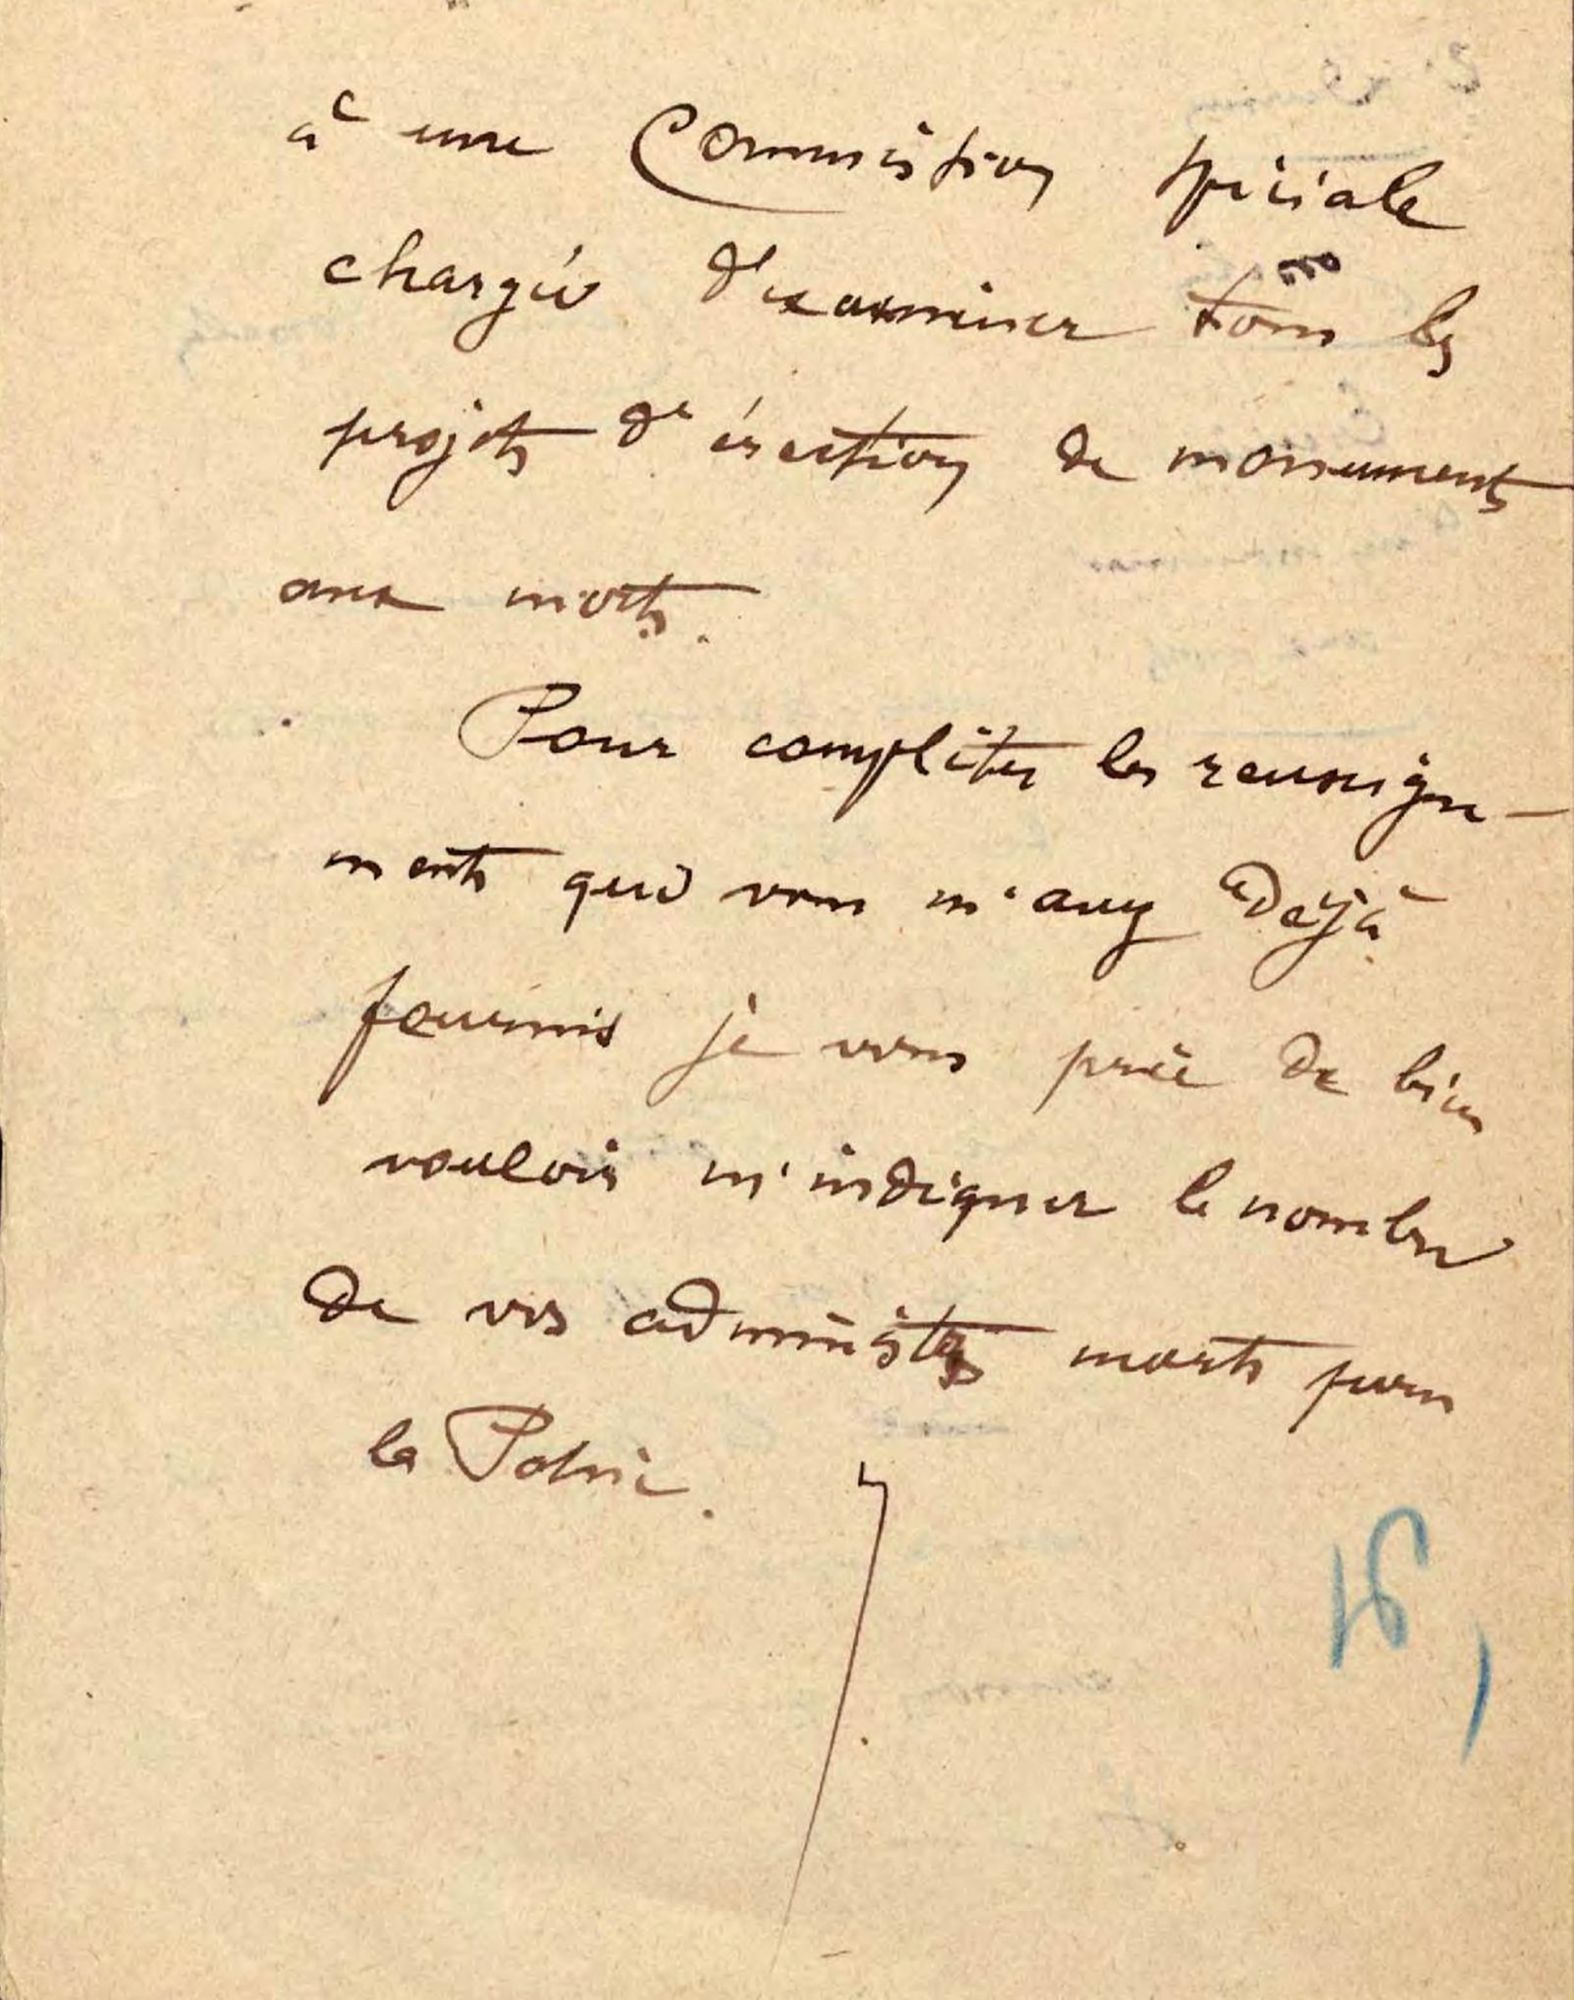 à une Commission spéciale
chargée d'examiner tous les
projets d'érection de monuments
aux morts.
Pour compléter les renseigne-
ments que vous m'avez déjà
fournis je vous prie de bien
vouloir m'indiquer le nombre
de vos administrés morts pour
la Patrie.